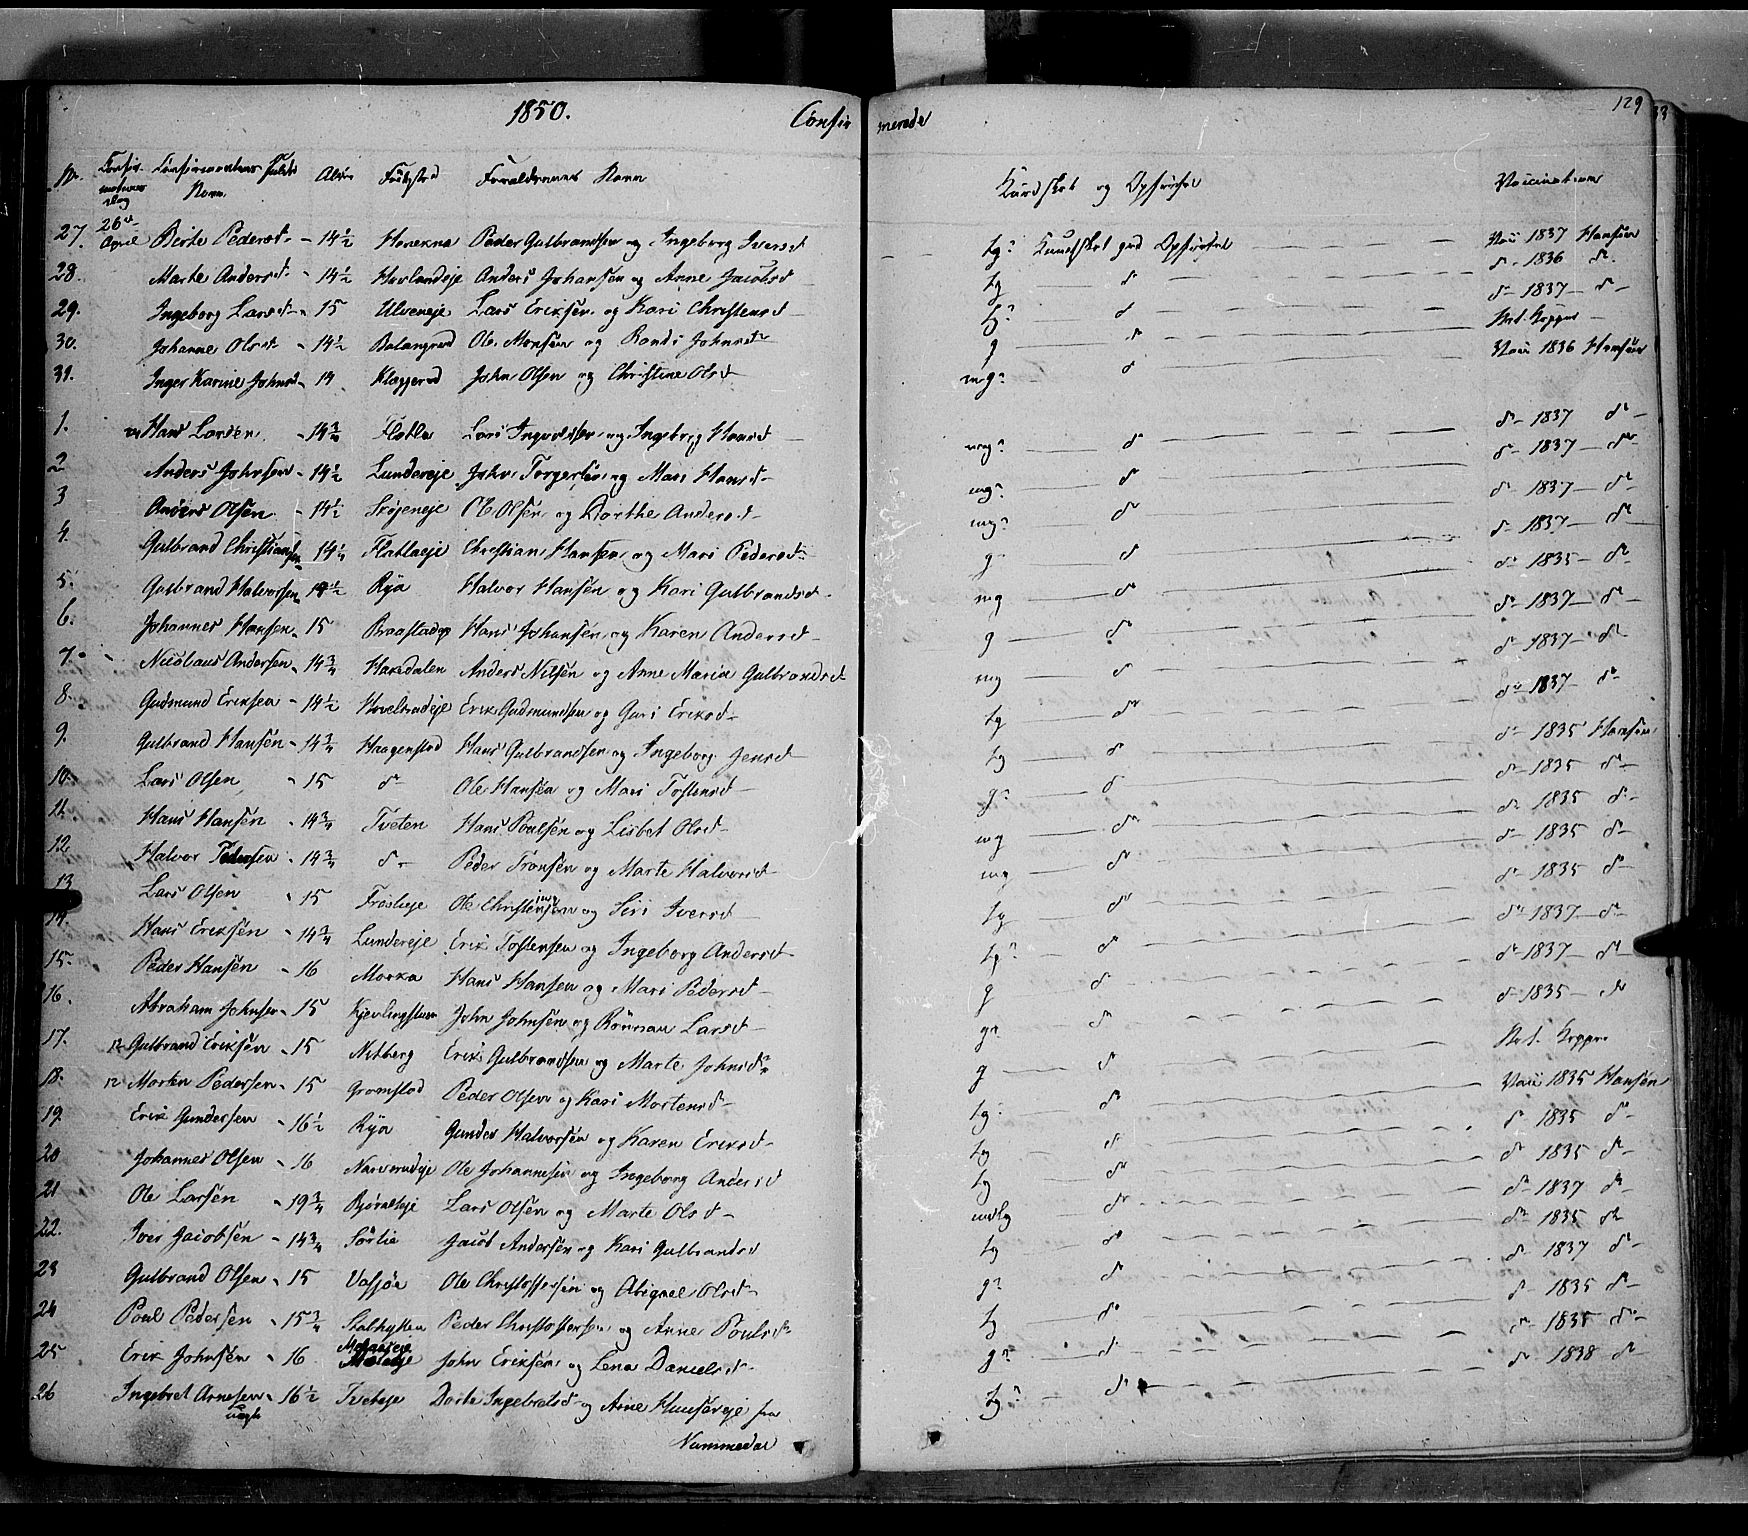 1850. Confir merede 129
No Confirmations Dag Confirmantens fulde Navn Alder Fødested Forældrenes Navn Kundskab og Opførsel Vaccinationen
27. 26de April Berte Pedersd. - 14 1/2 Peder Gulbrandsen og Ingeborg Iversd tg? Kundskab god Opførsel Vacc 1837 Hansen
28. Marte Andersd - 14 1/2 Hovlandeje Anders Johansen og Anne Jacobsd tg do do 1836 do
29. Ingeborg Larsd - 15 Ulveneje Lars Eriksen og Kari Christensd tg? do do 1837 do
30. Johanne Olsd - 14 1/2 Ole Monsen og Randi Johnsd g do Nat. Kopper
31. Inger Karine Johnsd - 14 John Olsen og Christine Olsd mg? do Vacc 1836 Hansen
1. Hans Larsen - 14 3/4 Flatla Lars Ingvoldsen og Ingeborg Hansd mg? do do 1837 do
2 Anders Johnsen - 14 1/2 Lundereje John Torgersen og Mari Hansd mg? do do 1837 do
3 Anders Olsen - 14 1/2 Skøjeneje Ole Olsen og Dorthe Andersd mg? do do 1837 do
4. Gulbrand Christiansen 14 1/4 Flatlaeje Christian Hansen og Mari Pedersd g do do 1837 do
5. Gulbrand Halvorsen 14 1/2 Rya Halvor Hansen og Kari Gulbrandsd mg do do 1835 do
6. Johannes Hansen - 15 Braastadeje Hans Johansen og Karen Andersd g do do 1837 do
7. Nicolaus Andersen - 14 3/4 Haredalen Anders Nilsen og Anne Maria Gulbrandsd mg do do 1837 do
8. Gudmund Eriksen - 14 1/2 Erik Gudmundsen og Guri Eriksd tg do do 1837 do
9. Gulbrand Hansen - 14 3/4 Haagenstad Hans Gulbrandsen og Ingeborg Jensd tg do do 1835 Hansen
10. Lars Olsen - 15 do Ole Hansen og Mari Tostensd g? do do 1835 do
11. Hans Hansen - 14 3/4 Tveten Hans Poulsen og Lisbet Olsd mg do do 1835 do
12 Halvor Pedersen - 14 3/4 do Peder Tronsen og Marte Halvorsd mg do do 1835 do
13 Lars Olsen - 15 Ole Christensen og Siri Iversd tg do do 1835 do
14. Hans Eriksen - 14 3/4 Lundereje Erik Tostensen og Ingeborg Andersd tg? do do 1837 do
15. Peder Hansen - 16 Morka Hans Hansen og Mari Pedersd g do do 1837 do
16. Abraham Johnsen - 15 John Johnsen og Rønnau Larsd g? do do 1835 do
17. Gulbrand Eriksen - 15 Nitberg Erik Gulbrandsen og Marte Johnsd g do Nat. Kopper
18. Morten Pedersen - 15 Gromstad Peder Olsen og Kari Mortensd tg. do Vacc 1835 Hansen
19. Erik Gundersen - 16 1/2 Rya Gunder Halvorsen og Karen Eriksd tg do do 1835 do
20 Johannes Olsen - 16 Narverudeje Ole Johannesen og Ingeborg Andersd tg do do 1835 do
21 Ole Larsen - 19 3/4 Lars Olsen og Marte Olsd mdlg do do 1837 do
22. Iver Jacobsen - 14 3/4 Sørlie Jacob Andersen og Kari Gulbrandsd tg do do 1835 do
23 Gulbrand Olsen - 15 Valsjøe Ole Christoffersen og Abigael Olsd g? do do 1837 do
24 Poul Pedersen - 15 3/4 Peder Christoffersen og Anne Poulsd tg do do 1835 do
25 Erik Johnsen - 16 John Eriksen og Lena Danielsd g? do do 1835 do
26 Ingebret Arnesen uægte - 16 1/2 Tveteje Dorte Ingebretsd og Arne Huusereje fra tg? do do 1838 do
Nummedal